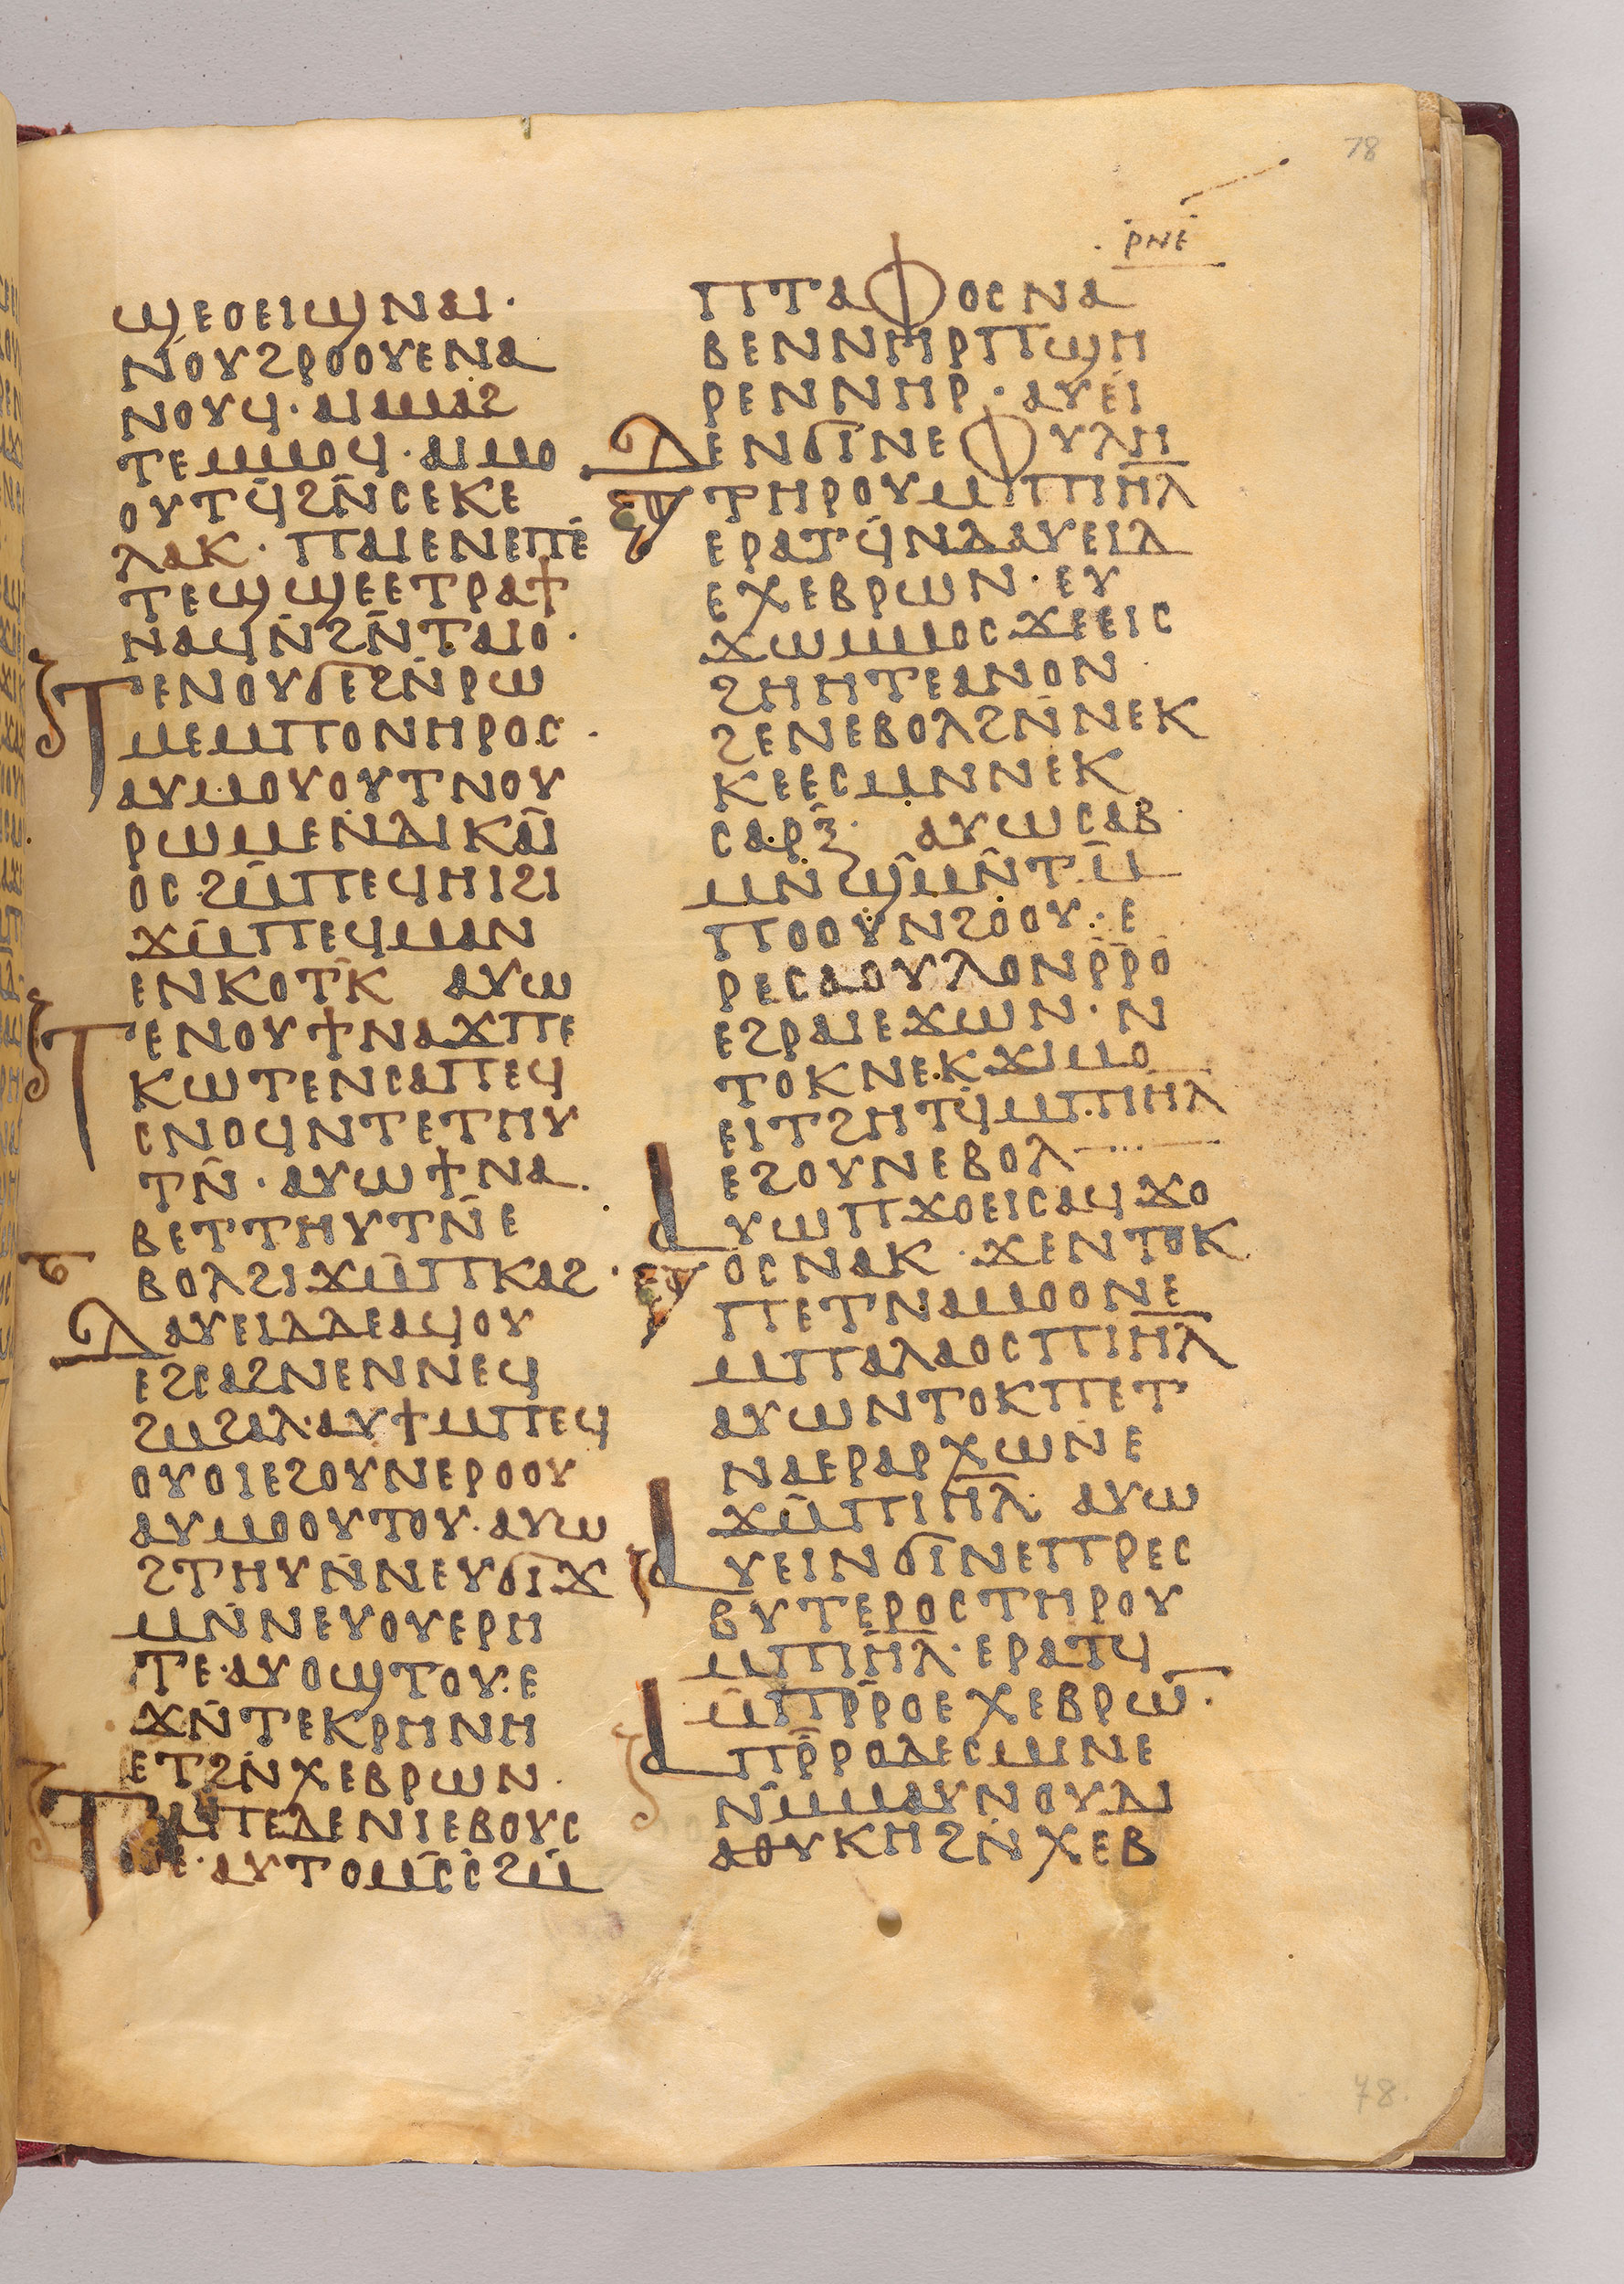 78
ⲣⲛⲉ
ϣⲉⲟⲉⲓϣⲛⲁⲓ·
ⲛⲟⲩϩⲣⲟⲟⲩⲉⲛⲁ
ⲛⲟⲩϥ·ⲁⲓⲁⲙⲁϩ
ⲧⲉⲙⲙⲟϥ·ⲁⲓⲙⲟ
ⲟⲩⲧϥϩⲛ̄ⲥⲉⲕⲉ
ⲗⲁⲕ·ⲡⲁⲓⲉⲛⲉⲡⲉ
ⲧⲉϣϣⲉⲉⲧⲣⲁϯ
ⲛⲁϥⲛ̄ϩⲛ̄ⲧⲁⲓⲟ·
ⲧⲉⲛⲟⲩϭⲉϩⲛ̄ⲣⲱ
ⲙⲉⲙⲡⲟⲛⲏⲣⲟⲥ·
ⲁⲩⲙⲟⲩⲟⲩⲧⲛⲟⲩ
ⲣⲱⲙⲉⲛⲇⲓⲕⲁⲓ
ⲟⲥϩⲙ̄ⲡⲉϥⲏⲓϩⲓ
ϫⲙ̄ⲡⲉϥⲙⲁⲛ
ⲉⲛⲕⲟⲧⲕ̄ ⲁⲩⲱ
ⲧⲉⲛⲟⲩϯⲛⲁϫⲡⲉ
ⲕⲱⲧⲉⲛⲥⲁⲡⲉϥ
ⲥⲛⲟϥⲛⲧⲉⲧⲏⲩ
ⲧⲛ̄·ⲁⲩⲱϯⲛⲁ
ⲃⲉⲧⲧⲏⲩⲧⲛ̄ⲉ
ⲃⲟⲗϩⲓϫⲙ̄ⲡⲕⲁϩ·
ⲇⲁⲩⲉⲓⲇⲇⲉⲁϥⲟⲩ
ⲉϩⲥⲁϩⲛⲉⲛⲛⲉϥ
ϩⲙϩⲁⲗ·ⲁⲩϯⲙⲡⲉϥ
ⲟⲩⲟⲓⲉϩⲟⲩⲛⲉⲣⲟⲟⲩ
ⲁⲩⲙⲟⲟⲩⲧⲟⲩ·ⲁⲩⲱ
ϩⲧⲏⲩⲛ̄ⲛⲉⲩϭⲓϫ
ⲙⲛ̄ⲛⲉⲩⲟⲩⲉⲣⲏ
ⲧⲉ·ⲁⲩⲟϣⲧⲟⲩ·ⲉ
ϫⲛ̄ⲧⲉⲕⲣⲏⲛⲏ
ⲉⲧϩⲛ̄ⲭⲉⲃⲣⲱⲛ·
ⲧⲁⲡⲉⲇⲉⲛⲓⲉⲃⲟⲩⲥ
ⲑⲉ·ⲁⲩⲧⲟⲙⲥ̄ⲥ̄ϩⲙ̄
ⲡⲧⲁⲫⲟⲥⲛⲁ
ⲃⲉⲛⲛⲏⲣⲡϣⲏ
ⲣⲉⲛⲛⲏⲣ·ⲁⲩⲉⲓ
ⲇⲉⲛϭⲓⲛⲉⲫⲩⲗⲏ
ⲧⲏⲣⲟⲩⲙ̄ⲡⲓⲏ̄ⲗ̄
ⲉⲣⲁⲧϥ̄ⲛⲇⲁⲩⲉⲓⲇ
ⲉⲭⲉⲃⲣⲱⲛ·ⲉⲩ
ϫⲱⲙⲙⲟⲥϫⲉⲉⲓⲥ
ϩⲏⲏⲧⲉⲁⲛⲟⲛ
ϩⲉⲛⲉⲃⲟⲗϩⲛ̄ⲛⲉⲕ
ⲕⲉⲉⲥⲙⲛⲛⲉⲕ
ⲥⲁⲣⲝ̄· ⲁⲩⲱⲥⲁⲃ
ⲙⲛϣⲙⲛ̄ⲧⲙ̄
ⲡⲟⲟⲩⲛϩⲟⲟⲩ:·ⲉ
ⲣⲉⲥⲁⲟⲩⲗⲟⲛⲣ̄ⲣⲟ
ⲉϩⲣⲁⲓⲉϫⲱⲛ·ⲛ
ⲧⲟⲕⲛⲉⲕϫⲓⲙⲟ
ⲉⲓⲧϩⲏⲧϥ̄ⲙⲡⲓⲏ̄ⲗ̄
ⲉϩⲟⲩⲛⲉⲃⲟⲗ
ⲁⲩⲱⲡϫⲟⲉⲓⲥⲁϥϫⲟ
ⲟⲥⲛⲁⲕ·ϫⲉⲛⲧⲟⲕ
ⲡⲉⲧⲛⲁⲙⲟⲟⲛⲉ
ⲙⲡⲁⲗⲁⲟⲥⲡⲓⲏ̄ⲗ̄
ⲁⲩⲱⲛⲧⲟⲕⲡⲉⲧ
ⲛⲁⲉⲣⲁⲣⲭⲱⲛⲉ
ϫⲙ̄ⲡⲓⲏ̄ⲗ̄· ⲁⲩⲱ
ⲁⲩⲉⲓⲛϭⲓⲛⲉⲡⲣⲉⲥ
ⲃⲩⲧⲉⲣⲟⲥⲧⲏⲣⲟⲩ
ⲙⲡⲓⲏ̄ⲗ̄·ⲉⲣⲁⲧϥ
ⲙ̄ⲡⲣ̄ⲣⲟⲉⲭⲉⲃⲣⲱ̄·
ⲁⲡⲣ̄ⲣⲟⲇⲉⲥⲙⲛⲉ
ⲛⲙ̄ⲙⲁⲩⲛⲟⲩⲇⲓ
ⲁⲑⲩⲕⲏϩⲛ̄ⲭⲉⲃ
78.